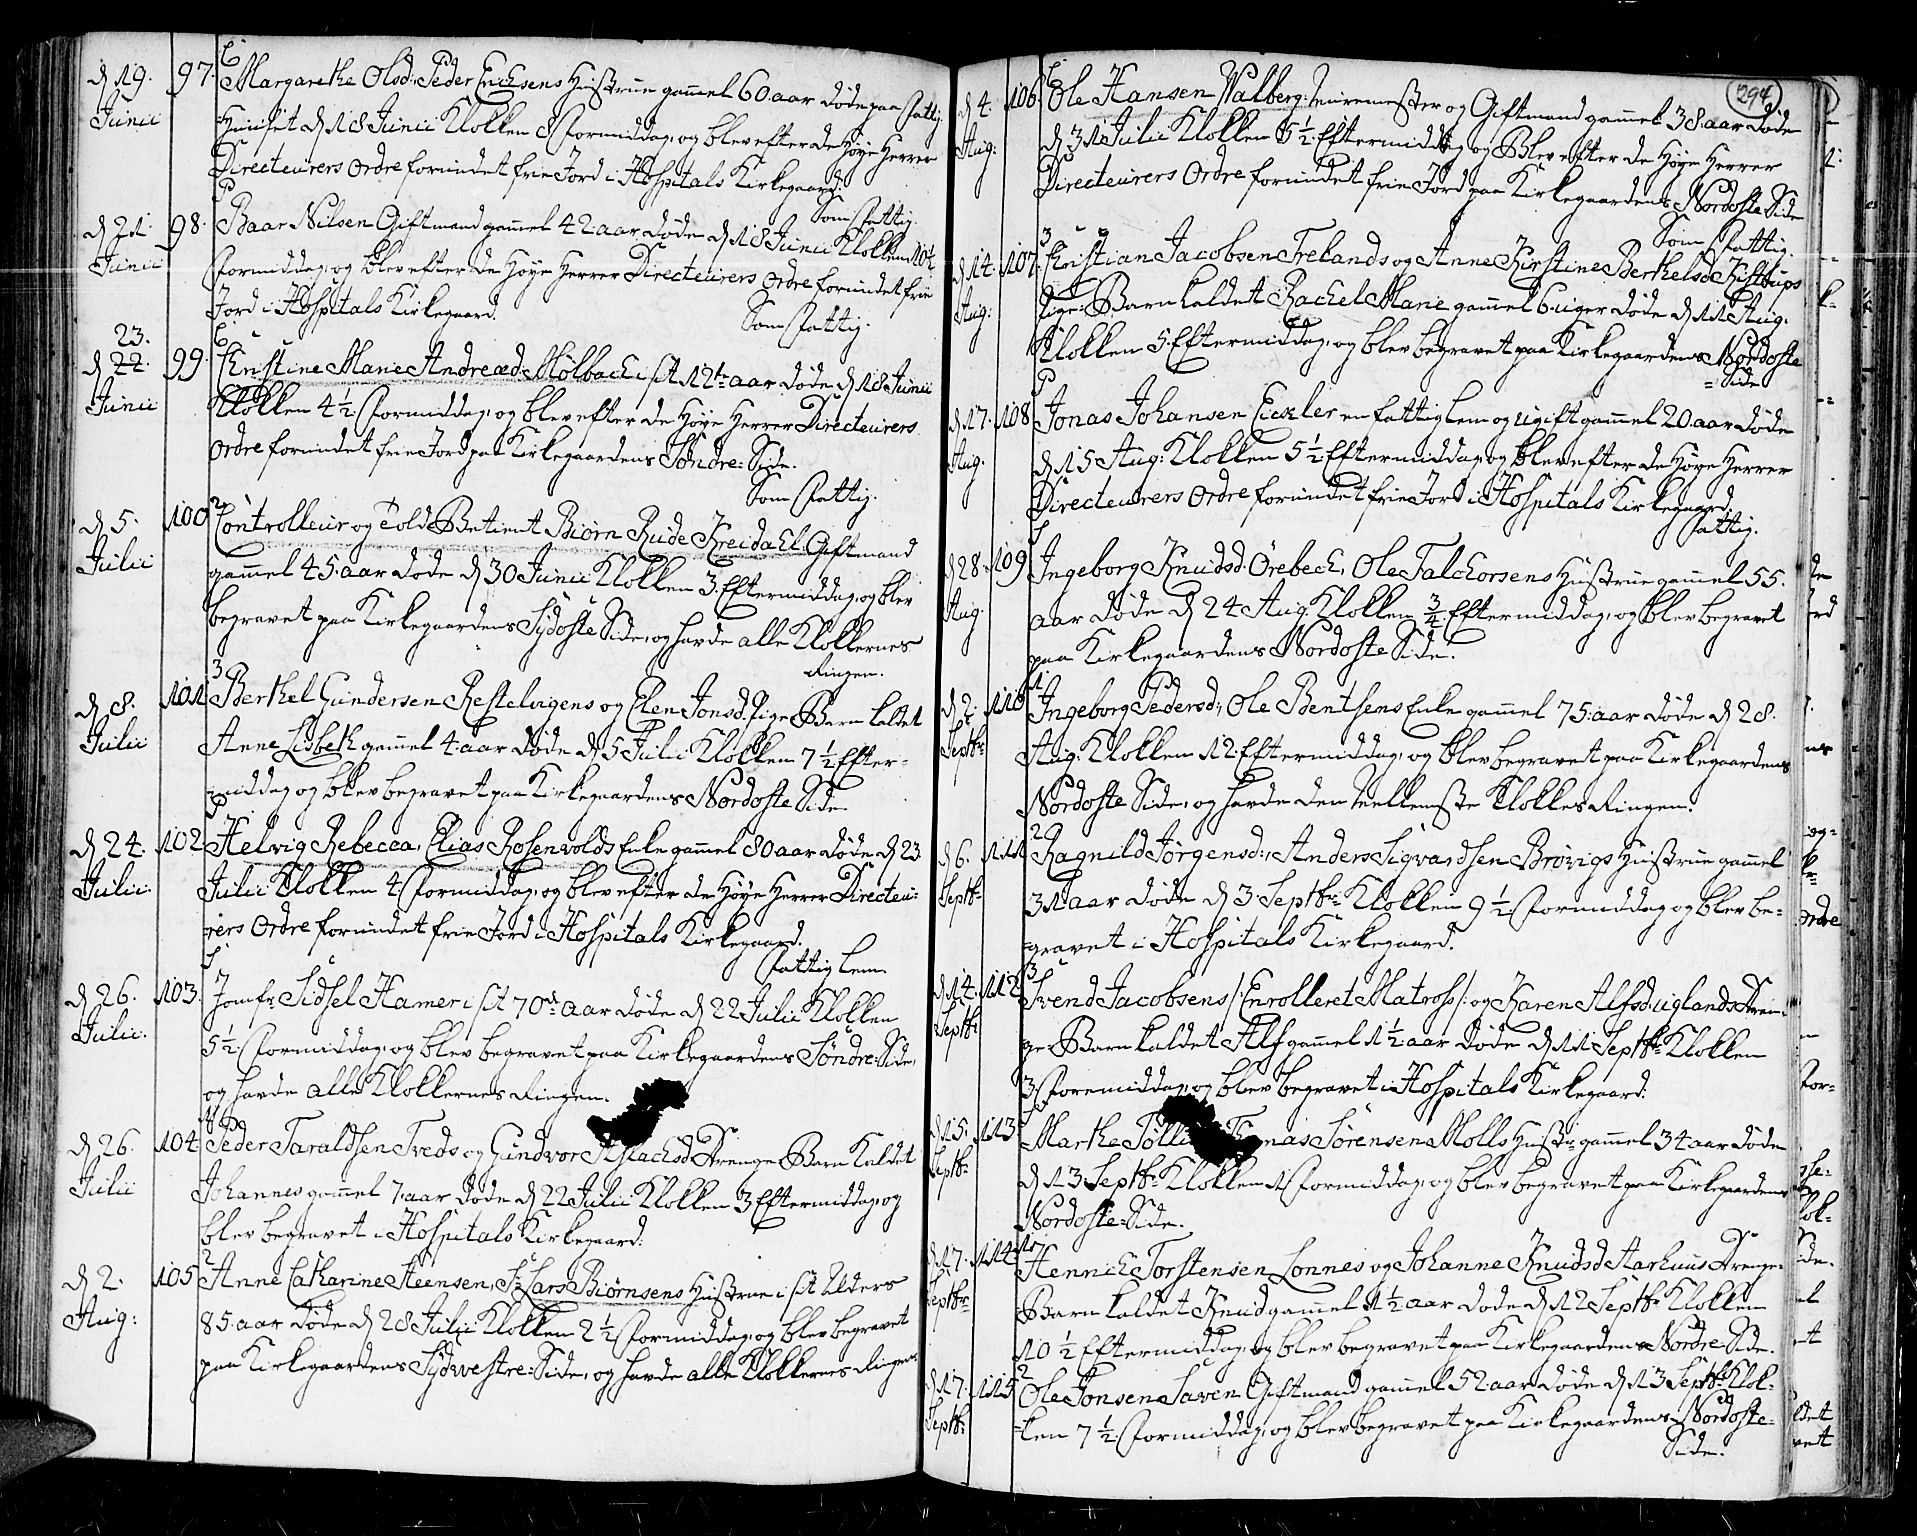 d 19. Junii 97. Margarethe Olsd: Peder Erichsens Hustrue gammel 60 aar døde paa Fattig
Huuset d 18 Junii Klokken 8 Formiddag, og blev efter de Høye Herrer
Directeurers Ordre forundet frie Jord i Hospitals Kirkegaard.
Som Fattig.
d 21. Junii 98. Baar Nilsen Giftmand gammel 42 aar døde d 18 Junii Klokken 10½
Formiddag, og blev efter de Høye Herrer Directeurers Ordre forundet frie
Jord i Hospitals Kirkegaard.
Som Fattig.
23.
d 22. Junii 99. Christine Marie Andreæd. Mølbach i sit 12te aar døde d 18 Junii
Klokken 4½ Formiddag, og blev efter de Høye Herrer Directeurers
Ordre forundet frie Jord paa Kirkegaardens Søndre-Side.
Som Fattig.
d 5. Julii 100 Controlleur og Told-Betient Biørn Rude Kreidahl Giftmand
gammel 45 aar døde d 30 Junii Klokken 3 Eftermiddag, og blev
begravet paa Kirkegaardens Sydoste Side, og havde alle Klokkernes
Ringen.
d 8. Julii 101 Berthel Gundersen Restelvigens og Elen Jonsd. Pige-Barn kaldet
Anne Lisbeth gammel 4 aar døde d 5 Julii Klokken 7½ Efter-
middag og blev begravet paa Kirkegaardens Nordoste Side.
d 24. Julii 102 Helvig Rebecca, Elias Rosenvolds Enke gammel 80 aar døde d 23
Julii Klokken 4 Formiddag, og blev efter de Høye Herrer Directeu-
rers Ordre forundet frie Jord i Hospitals Kirkegaard.
Fattig Lem.
d 26. Julii. 103. Jomfr Sidsel Hamer i sit 70de aar døde d 22 Julii Klokken
5½ Formiddag, og blev begravet paa Kirkegaardens Søndre-Side,
og havde alle Klokkernes Ringen.
d 26. Julii 104 Peder Taraldsen Treds og Gundvor Aslachsd Drenge Barn kaldet
Johannes gammel 7 aar døde d 22 Julii Klokken 3 Eftermiddag, og
blev begravet i Hospitals Kirkegaard.
d 2. Aug: 105 Anne Catharine Steensen, Sr Lars Biørnsens Hustrue i sit Alders
85 aar døde d 28 Julii Klokken 2½ Formiddag, og blev begravet
paa Kirkegaardens Sydvestre-Side, og havde alle Klokkernes Ringen.
294
d 4. Aug: 106. Ole Hansen Walberg Muremester og Giftmand gammel 38 aar døde
d 31 Julii Klokken 5½ Eftermiddag og Blev efter de Høye Herrer
Directeurers Ordre forundet frie Jord paa Kirkegaardens Nordoste Side
Som Fattig.
d 14. Aug: 107. Christian Jacobsen Trelands og Anne Kirstine Berthelsd Kistrups
Pige-Barn kaldet Rachel Marie gammel 6 uger døde d 11 Aug.
Klokken 5 Eftermiddag, og blev begravet paa Kirkegaardens Nordoste
Side
d 17. Aug. 108 Jonas Johansen Eickler en fattig Lem og ugift gammel 20 aar døde
d 15 Aug: Klokken 5½ Eftermiddag, og blev efter de Høye Herrer
Directeurers Ordre forundet frie Jord i Hospitals Kirkegaard.
Fattig.
d 28. Aug. 109 Ingeborg Knudsd. Örebech, Ole Falchorsens Hustrue gammel 55
aar døde d 24 Aug. Klokken ¾ Eftermiddag, og blev begravet
paa Kirkegaardens Nordoste Side.
d 2. Septbr 110 Ingeborg Pedersd, Ole Bentsens Enke gammel 75 aar døde d 28
Aug. Klokken 12 Eftermiddag, og blev begravet paa Kirkegaardens
Nordoste Side, og havde den Mellemste Klokkes Ringen.
d 6. Septbr 111 Ragnild Jørgensd, Anders Sigvardsen Brøvigs Hustrue gammel
31 aar døde d 3 Septbr Klokken 9½ Formiddag og blev be-
gravet i Hospitals Kirkegaard.
d 14. Septbr 112 Svend Jacobsens /: Enrolleret Matross :/ og Karen Alfsd. uglands Dren-
ge-Barn kaldet Alf gammel 1½ aar døde d 11 Septbr Klokken
3 Formiddag, og blev begravet i Hospitals Kirkegaard.
d 15. Septbr 113 Marthe Sørensen Molls Hustr. gammel 34 aar døde
d 13 Septbr Klokken 1 Formiddag, og blev begravet paa Kirkegaardens
Nordoste-Side.
d 17. Septbr 114 Hennich Torstensen Lonnes og Johanne Knudsd Aarhuus Drenge-
Barn kaldet Knud gammel 1½ aar døde d 12 Septbr Klokken
10½ Eftermiddag, og blev begravet paa Kirkegaardens Nordre-Side.
d 17. Septbr 115 Ole Jonsen Saven Giftmand gammel 52 aar døde d 13 Septbr Klok-
ken 7½ Formiddag, og blev begravet paa Kirkegaardens Nordoste-
Side.